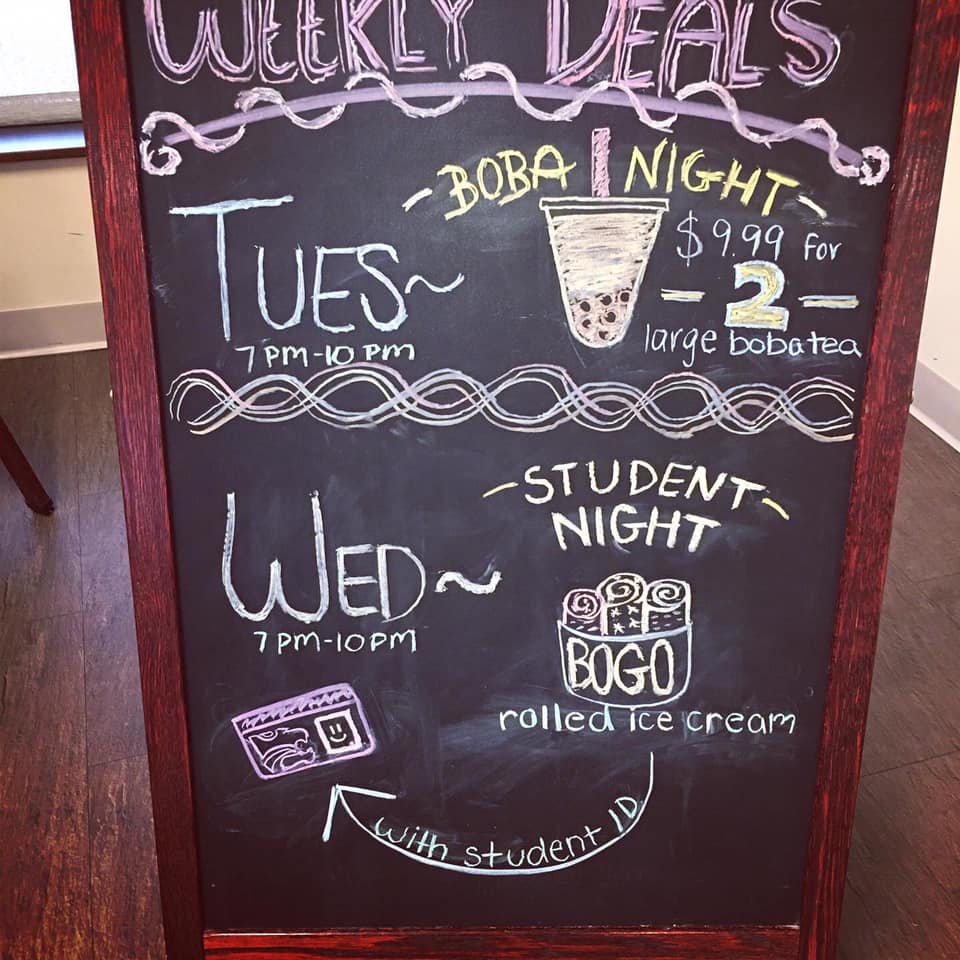 WEEKLY DEALS
TUES~
7PM-10PM
-BOBA NIGHT-
$9.99 for
- 2 -
large boba tea
WED~
7PM-10PM
-STUDENT-
NIGHT
BOGO
rolled ice cream
with student ID